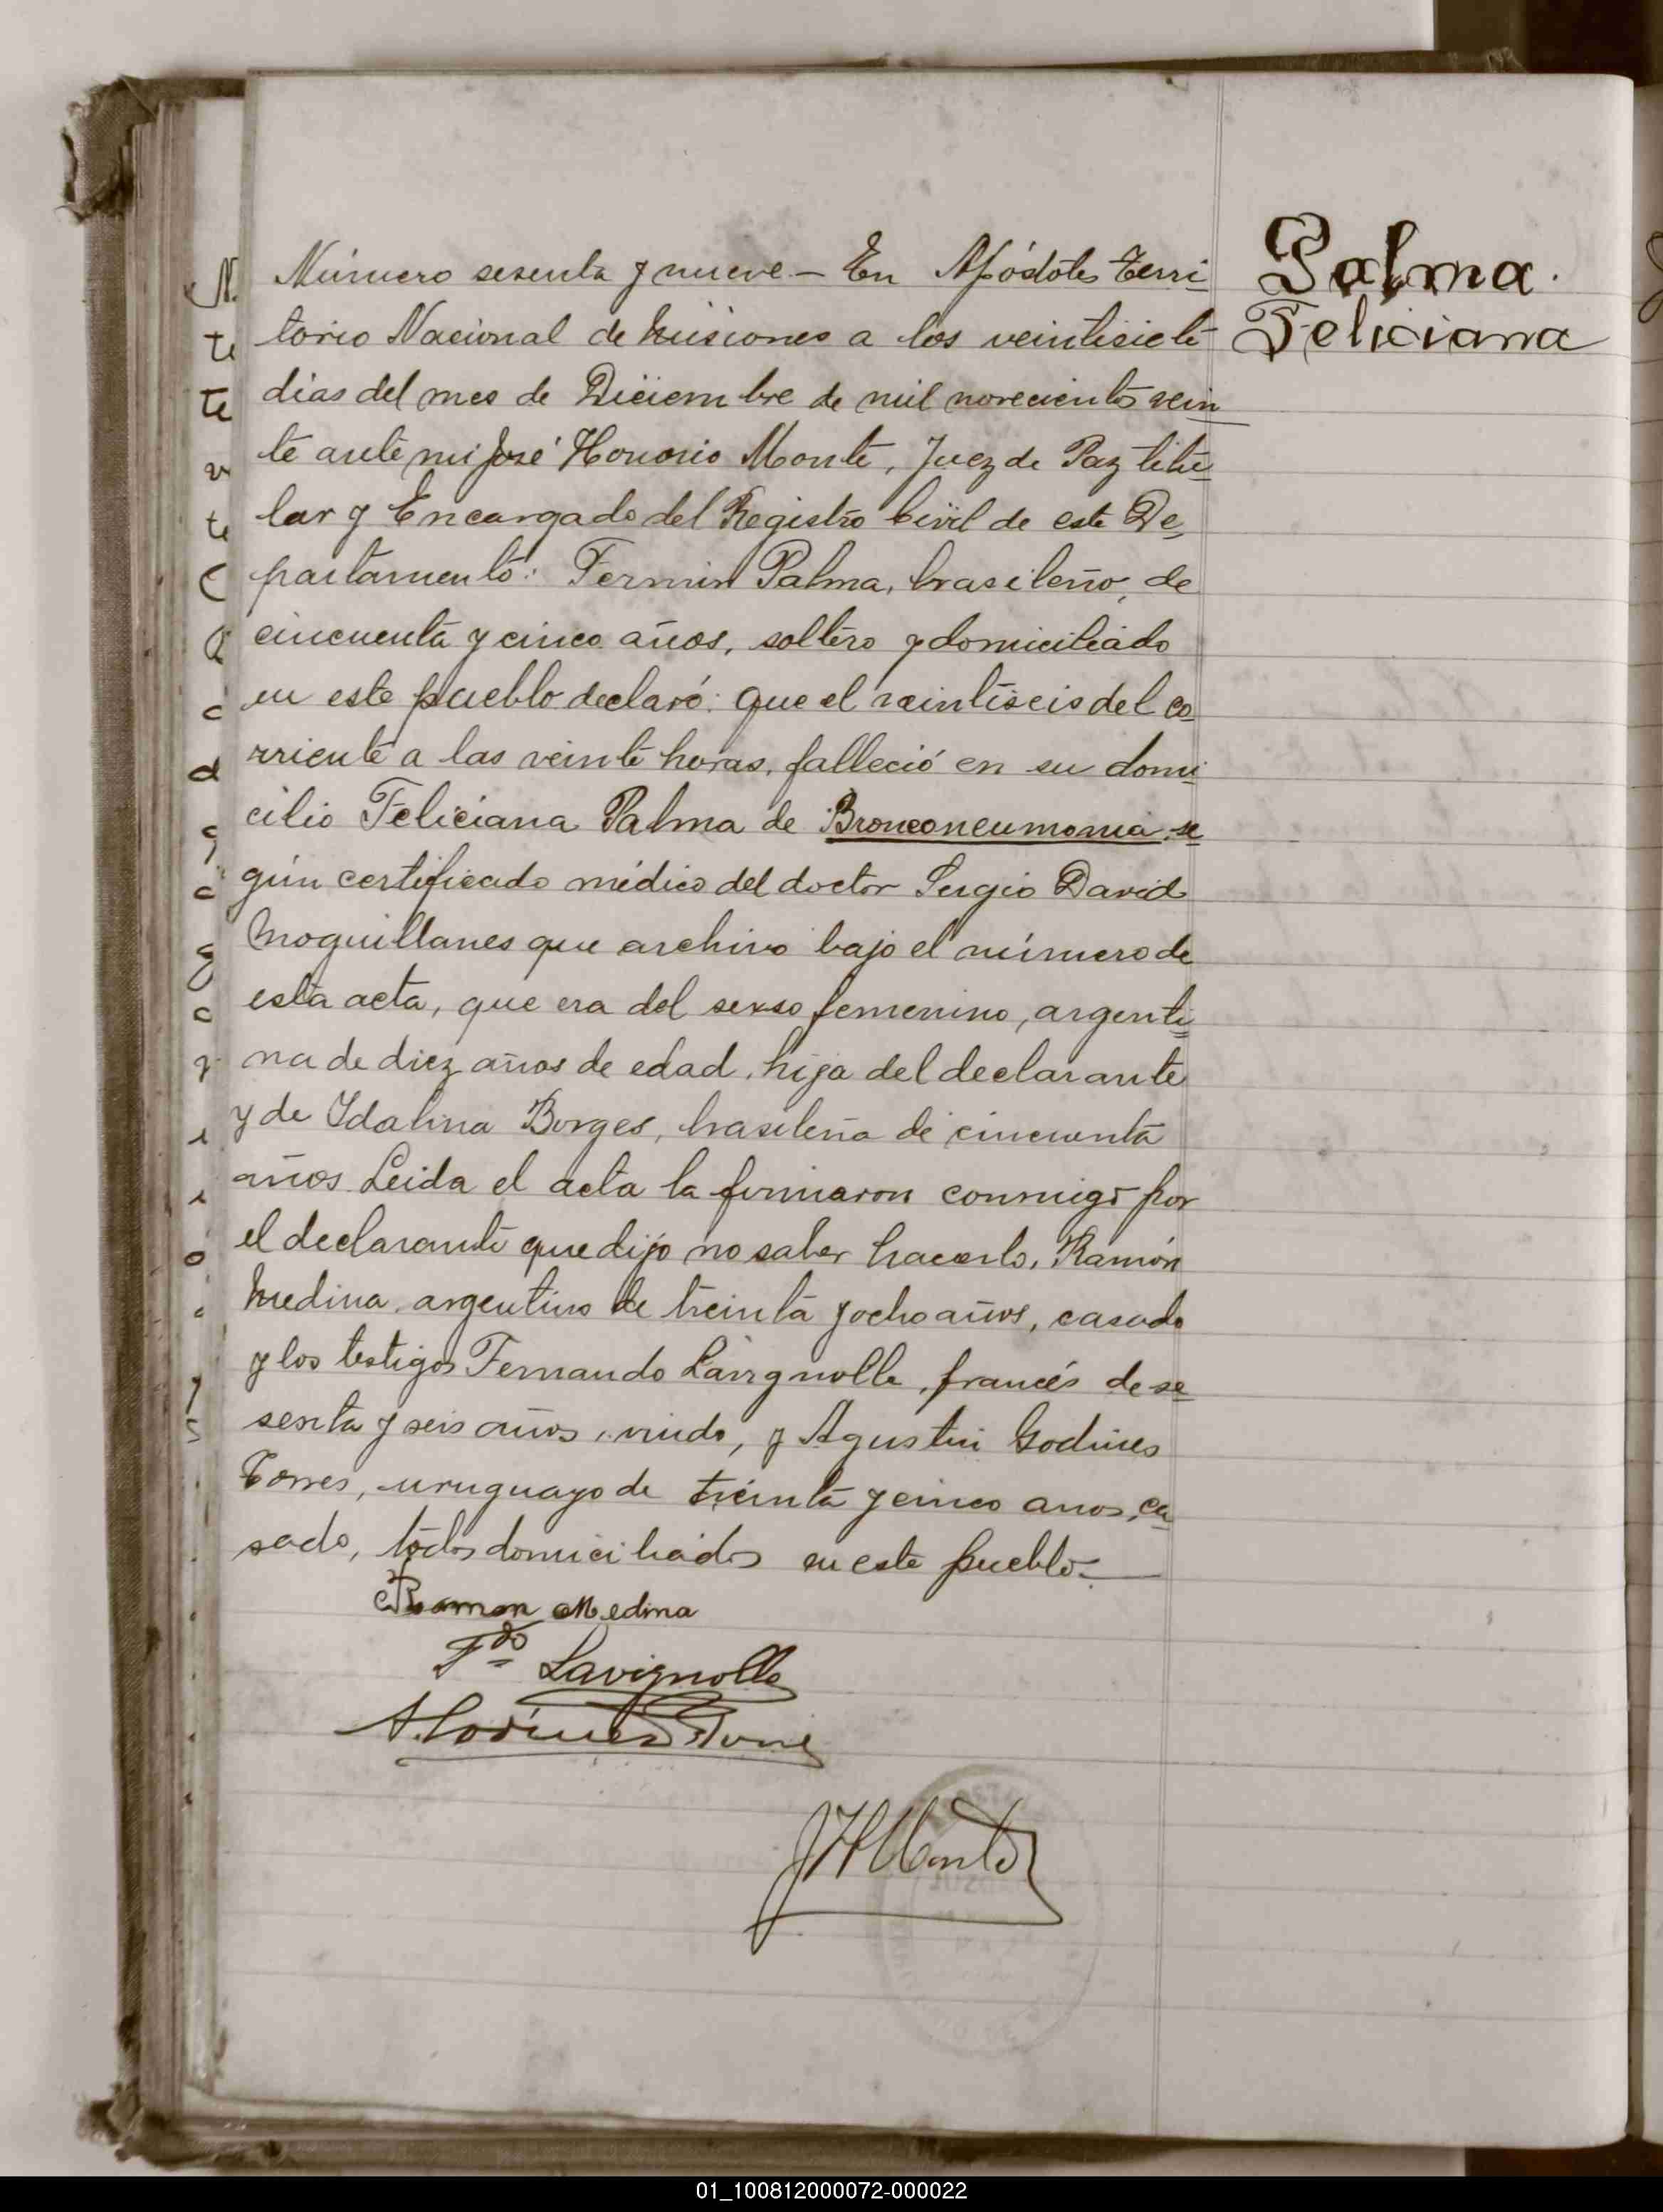 Número sesenta y nueve — En Apóstoles Terri-
torio Nacional de Misiones a los veintisiete
dias del mes de Diciembre de mil novecientos vein
te ante mi José Honorio Monte, Juez de Paz titu-
lar y Encargado del Registro Civil de este De-
partamento: Fermin Palma, brasileño, de
cincuenta y cinco años, soltero y domiciliado
en este pueblo declaró: que el veintiseis del co-
rriente a las veinte horas, falleció en su domi-
cilio Feliciana Palma de Bronconeumonia, se-
gún certificado médico del doctor Sergio David
Moguillanes que archivo bajo el número de
esta acta, que era del sexso femenino, argenti-
na de diez años de edad, hija del declarante
y de Ydalina Borges, brasileña de cincuenta
años. Leida el acta la firmaron conmigo por
el declarante que dijo no saber hacerlo, Ramón
Medina, argentino de treinta y ocho años, casado
y los testigos Fernando Lavignolle, francés de se-
senta y seis años, viudo, y Agustin Godines
Torres, uruguayo de treinta y cinco anos, ca-
sado, todos domiciliados en este pueblo —
Ramon Medina
Fdo Lavignolle
A. Godines Torres
JHMonte
Palma.
Feliciana
01_100812000072-000022